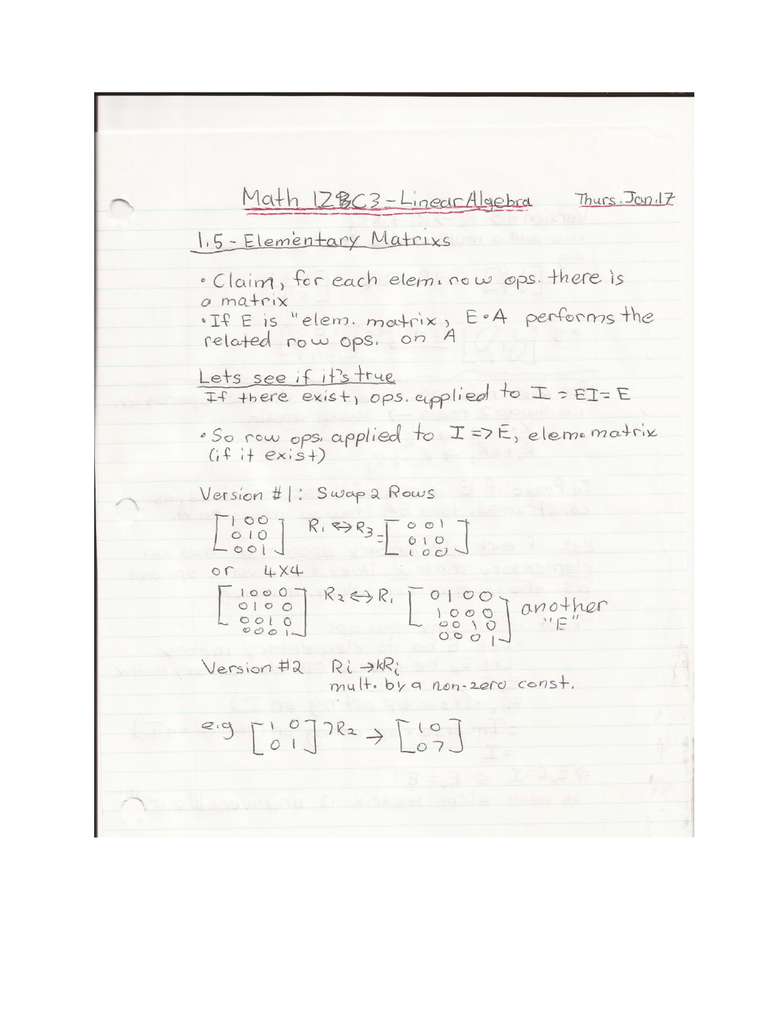 Math 1ZC3 - Linear Algebra Thurs. Jan. 17
1.5 - Elementary Matrixs
• Claim, for each elem. row ops. there is
a matrix
• If E is "elem. matrix, E•A performs the
related row ops. on A
Lets see if it's true
If there exist, ops. applied to I = EI = E
• So row ops. applied to I => E, elem. matrix
(if it exist)
Version #1: Swap 2 Rows
[1 0 0] R1 <-> R3 = [0 0 1]
[0 1 0] [0 1 0]
[0 0 1] [1 0 0]
or 4x4
[1 0 0 0] R2 <-> R1 [0 1 0 0] another
[0 1 0 0] [1 0 0 0] "E"
[0 0 1 0] [0 0 1 0]
[0 0 0 1] [0 0 0 1]
Version #2 Ri → kRi
mult. by a non-zero const.
e.g [1 0] 7R2 → [1 0]
[0 1] [0 7]